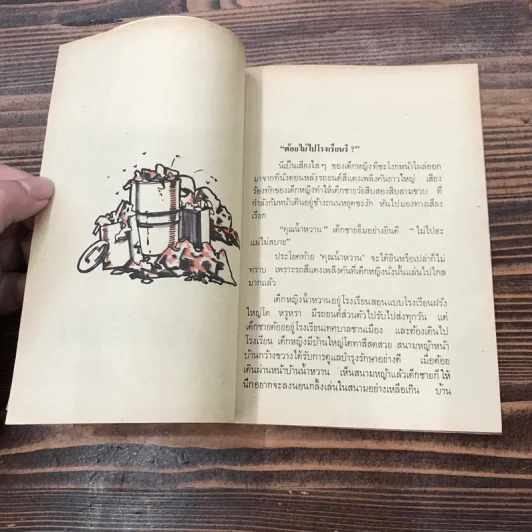 "ต้อยไม่ไปโรงเรียนรึ ?"
นี่เป็นเสียงใส ๆ ของเด็กหญิงที่ชะโงกหน้าโผล่ออก
มาจากที่นั่งตอนหลังรถยนต์สีแดงเพลิงคันยาวใหญ่ เสียง
ร้องทักของเด็กหญิงทำให้เด็กชายวัยสิบสองสิบสามขวบ ที่
กำลังก้มหน้าเดินอยู่ข้างถนนหยุดชะงัก หันไปมองทางเสียง
เรียก
"คุณน้ำหวาน" เด็กชายยิ้มอย่างยินดี "ไม่ไปฮะ
แม่ไม่สบาย"
ประโยคท้าย 'คุณน้ำหวาน' จะได้ยินหรือเปล่าก็ไม่
ทราบ เพราะรถสีแดงเพลิงคันที่เด็กหญิงนั่งนั้นแล่นไปไกล
มากแล้ว
เด็กหญิงน้ำหวานอยู่โรงเรียนสอนแบบโรงเรียนฝรั่ง
ใหญ่โต หรูหรา มีรถยนต์ส่วนตัวไปรับไปส่งทุกวัน แต่
เด็กชายต้อยอยู่โรงเรียนเทศบาลชานเมือง และต้องเดินไป
โรงเรียน เด็กหญิงมีบ้านใหญ่โตทาสีสดสวย สนามหญ้าหน้า
บ้านกว้างขวางได้รับการดูแลบำรุงรักษาอย่างดี เมื่อต้อย
เดินผ่านหน้าบ้านน้ำหวาน เห็นสนามหญ้าแล้วเด็กชายก็ให้
นึกอยากจะลงนอนกลิ้งเล่นในสนามอย่างเหลือเกิน บ้าน